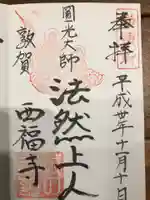 奉拝
平成廿年十一月十日
圓光大師
法然上人
敦賀
西福寺